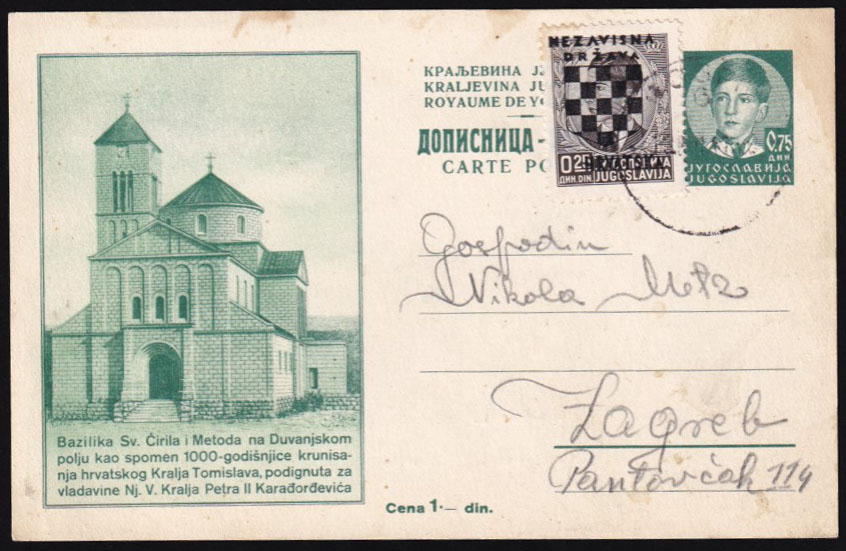 КРАЉЕВИНА
KRALJEVINA JU
ROYAUME DE YO
ДОПИСНИЦА -
CARTE PO
NEZAVISNA
DRŽAVA
HRVATSKA
0.25
ДИН. DIN.
ЈУГОСЛАВИЈА
JUGOSLAVIJA
0.75
ДИН.
ЈУГОСЛАВИЈА
JUGOSLAVIJA
Gospodin
Nikola Metz
Zagreb
Pantovčak 114
Bazilika Sv. Ćirila i Metoda na Duvanjskom
polju kao spomen 1000-godišnjice krunisa-
nja hrvatskog Kralja Tomislava, podignuta za
vladavine Nj. V. Kralja Petra II Karađorđevića
Cena 1·— din.